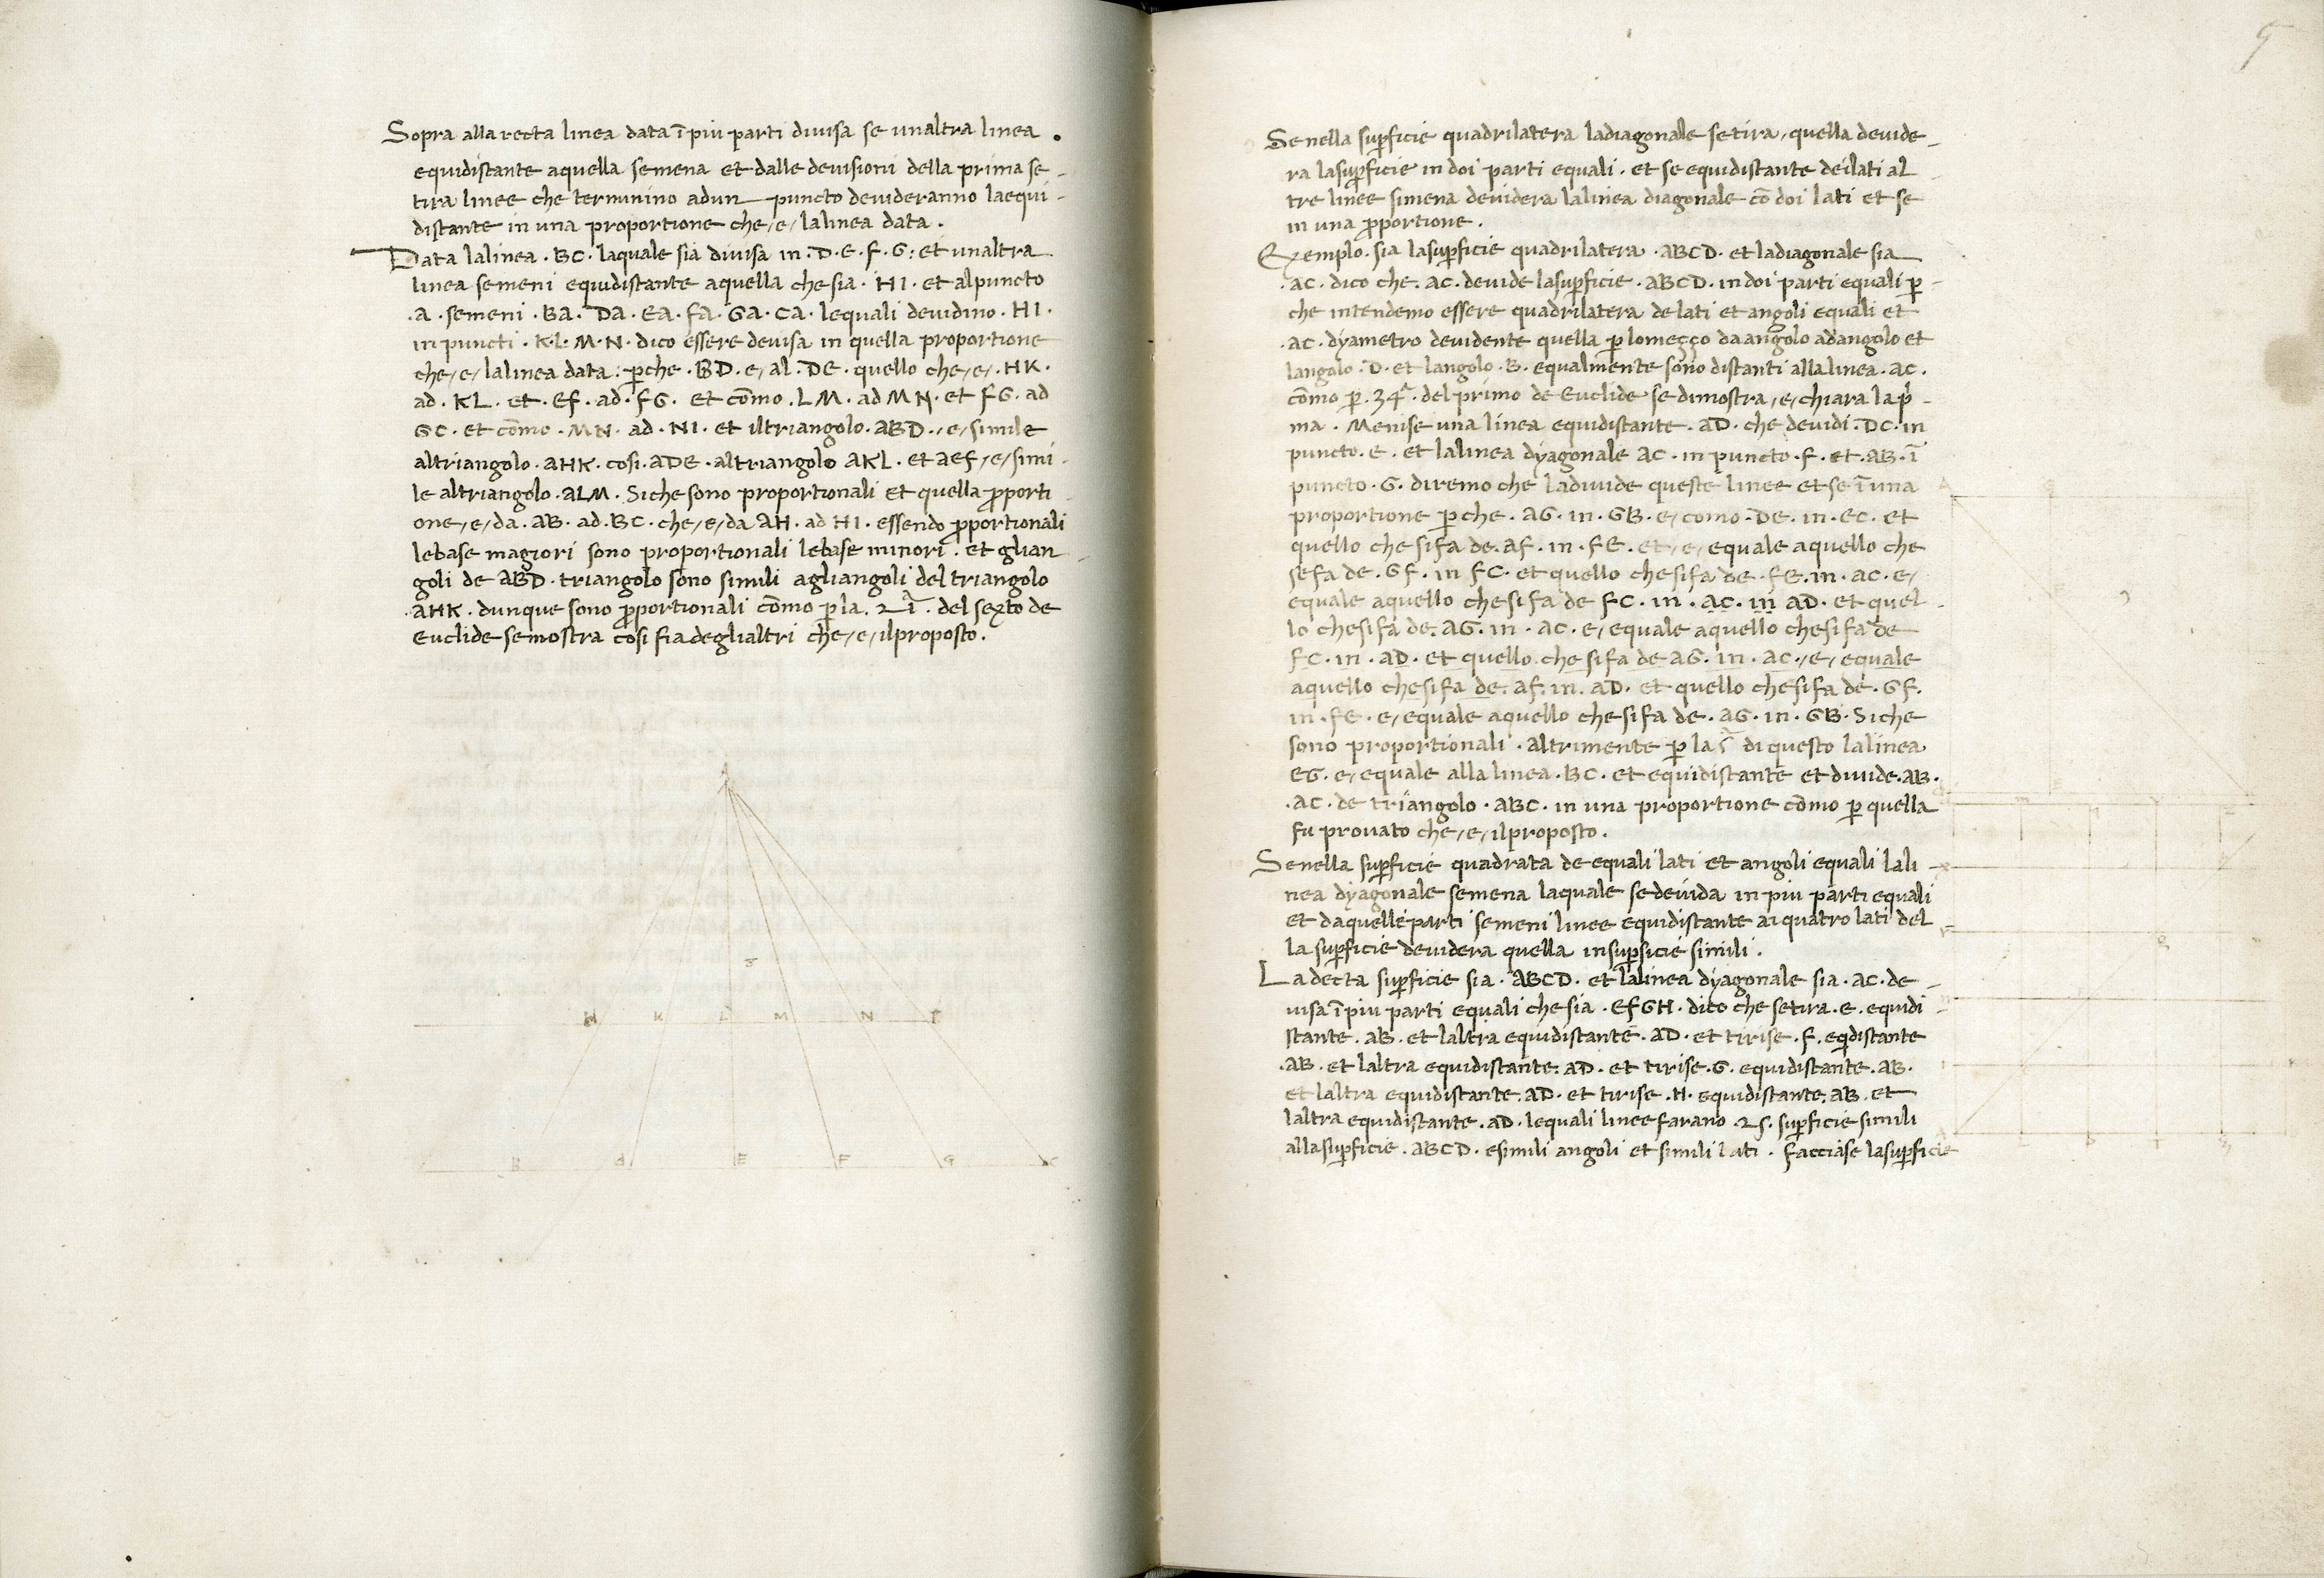 Sopra alla recta linea data ī piu parti divisa se unaltra linea .
equidistante aquella semena et dalle devisioni della prima se-
tira linee che terminino adun puncto devideranno laequi-
distante in una proportione che e lalinea data .
Data lalinea . BC . laquale sia divisa in . D . E . F . G : et unaltra
linea semeni equidistante aquella che sia . HI . et alpuncto
. A . semeni . BA . DA . EA . FA . GA . CA . lequali devidino . HI .
in puncti . K . L . M . N . dico essere devisa in quella proportione
che e lalinea data : p̄che . BD . e al . DE . quello che e . HK .
ad . KL . et . EF . ad . FG . et cōmo . LM . ad MN . et FG . ad
GC . et cōmo . MN . ad . NI . et iltriangolo . ABD . e simile
altriangolo . AHK . cosi . ADE . altriangolo AKL . et AEF e simi-
le altriangolo . ALM . Siche sono proportionali et quella p̄porti-
one e da . AB . ad . BC . che e da AH . ad HI . essendo p̄portionali
lebase magiori sono proportionali lebase minori . et glian-
goli de ABD . triangolo sono simili agliangoli del triangolo
. AHK . dunque sono p̄portionali cōmo p̄ la . 21ª . del sexto de
Euclide semostra cosi fia deglialtri che e ilproposto .
A
H K L M N I
B d E F G C
5
Se nella sup̄ficie quadrilatera ladiagonale setira, quella devide-
ra lasup̄ficie in doi parti equali . et se equidistante dei lati al-
tre linee simena devidera lalinea diagonale cō doi lati et se
in una p̄portione .
Exemplo . sia lasup̄ficie quadrilatera . ABCD . et ladiagonale sia
. AC . dico che . AC . devide lasup̄ficie . ABCD . in doi parti equali p̄-
che intendemo essere quadrilatera de lati et angoli equali et
. AC . dyametro devidente quella p̄ lomeçço da angolo adangolo et
langolo . D . et langolo . B . equalmente sono distanti alla linea . AC .
cōmo p̄ . 34ª . del primo de Euclide se dimostra, e chiara la p̄-
ma . Menise una linea equidistante . AD . che devidi . DC . in
puncto . E . et lalinea dyagonale AC . in puncto . F . et . AB . ī
puncto . G . diremo che ladivide queste linee et se ī una
proportione p̄che . AG . in . GB . e como . DE . in . EC . et
quello che sifa de . AF . in . FE . et e equale aquello che
sefa de . GF . in FC . et quello chesifa de . FE . in . AC . e
equale aquello chesifa de FC . in . AC . in AD . et quel-
lo chesifa de . AG . in . AC . e equale aquello chesifa de
FC . in . AD . et quello che sifa de AG . in . AC . e equale
aquello chesifa de . AF . in . AD . et quello chesifa de . GF .
in . FE . e equale aquello chesifa de . AG . in . GB . Siche
sono proportionali . altrimente p̄ la di questo lalinea
EG . e equale alla linea . BC . et equidistante et divide . AB .
. AC . de triangolo . ABC . in una proportione cōmo p̄ quella
fu provato che e ilproposto .
Se nella sup̄ficie quadrata de equali lati et angoli equali lali-
nea dyagonale semena laquale sedevida in piu parti equali
et daquelle parti semeni linee equidistante ai quatro lati del
la sup̄ficie devidera quella insup̄ficie simili .
La decta sup̄ficie sia . ABCD . et lalinea dyagonale sia . AC . de-
visa ī piu parti equali che sia . EFGH . dico che setira . E . equidi-
stante . AB . et laltra equidistante . AD . et tirise . F . eq̄distante
. AB . et laltra equidistante . AD . et tirise . G . equidistante . AB .
et laltra equidistante . AD . et tirise . H . equidistante . AB . et
laltra equidistante . AD . lequali linee farano 25 . sup̄ficie simili
alla sup̄ficie . ABCD . esimili angoli et simili lati . facciase lasup̄ficie